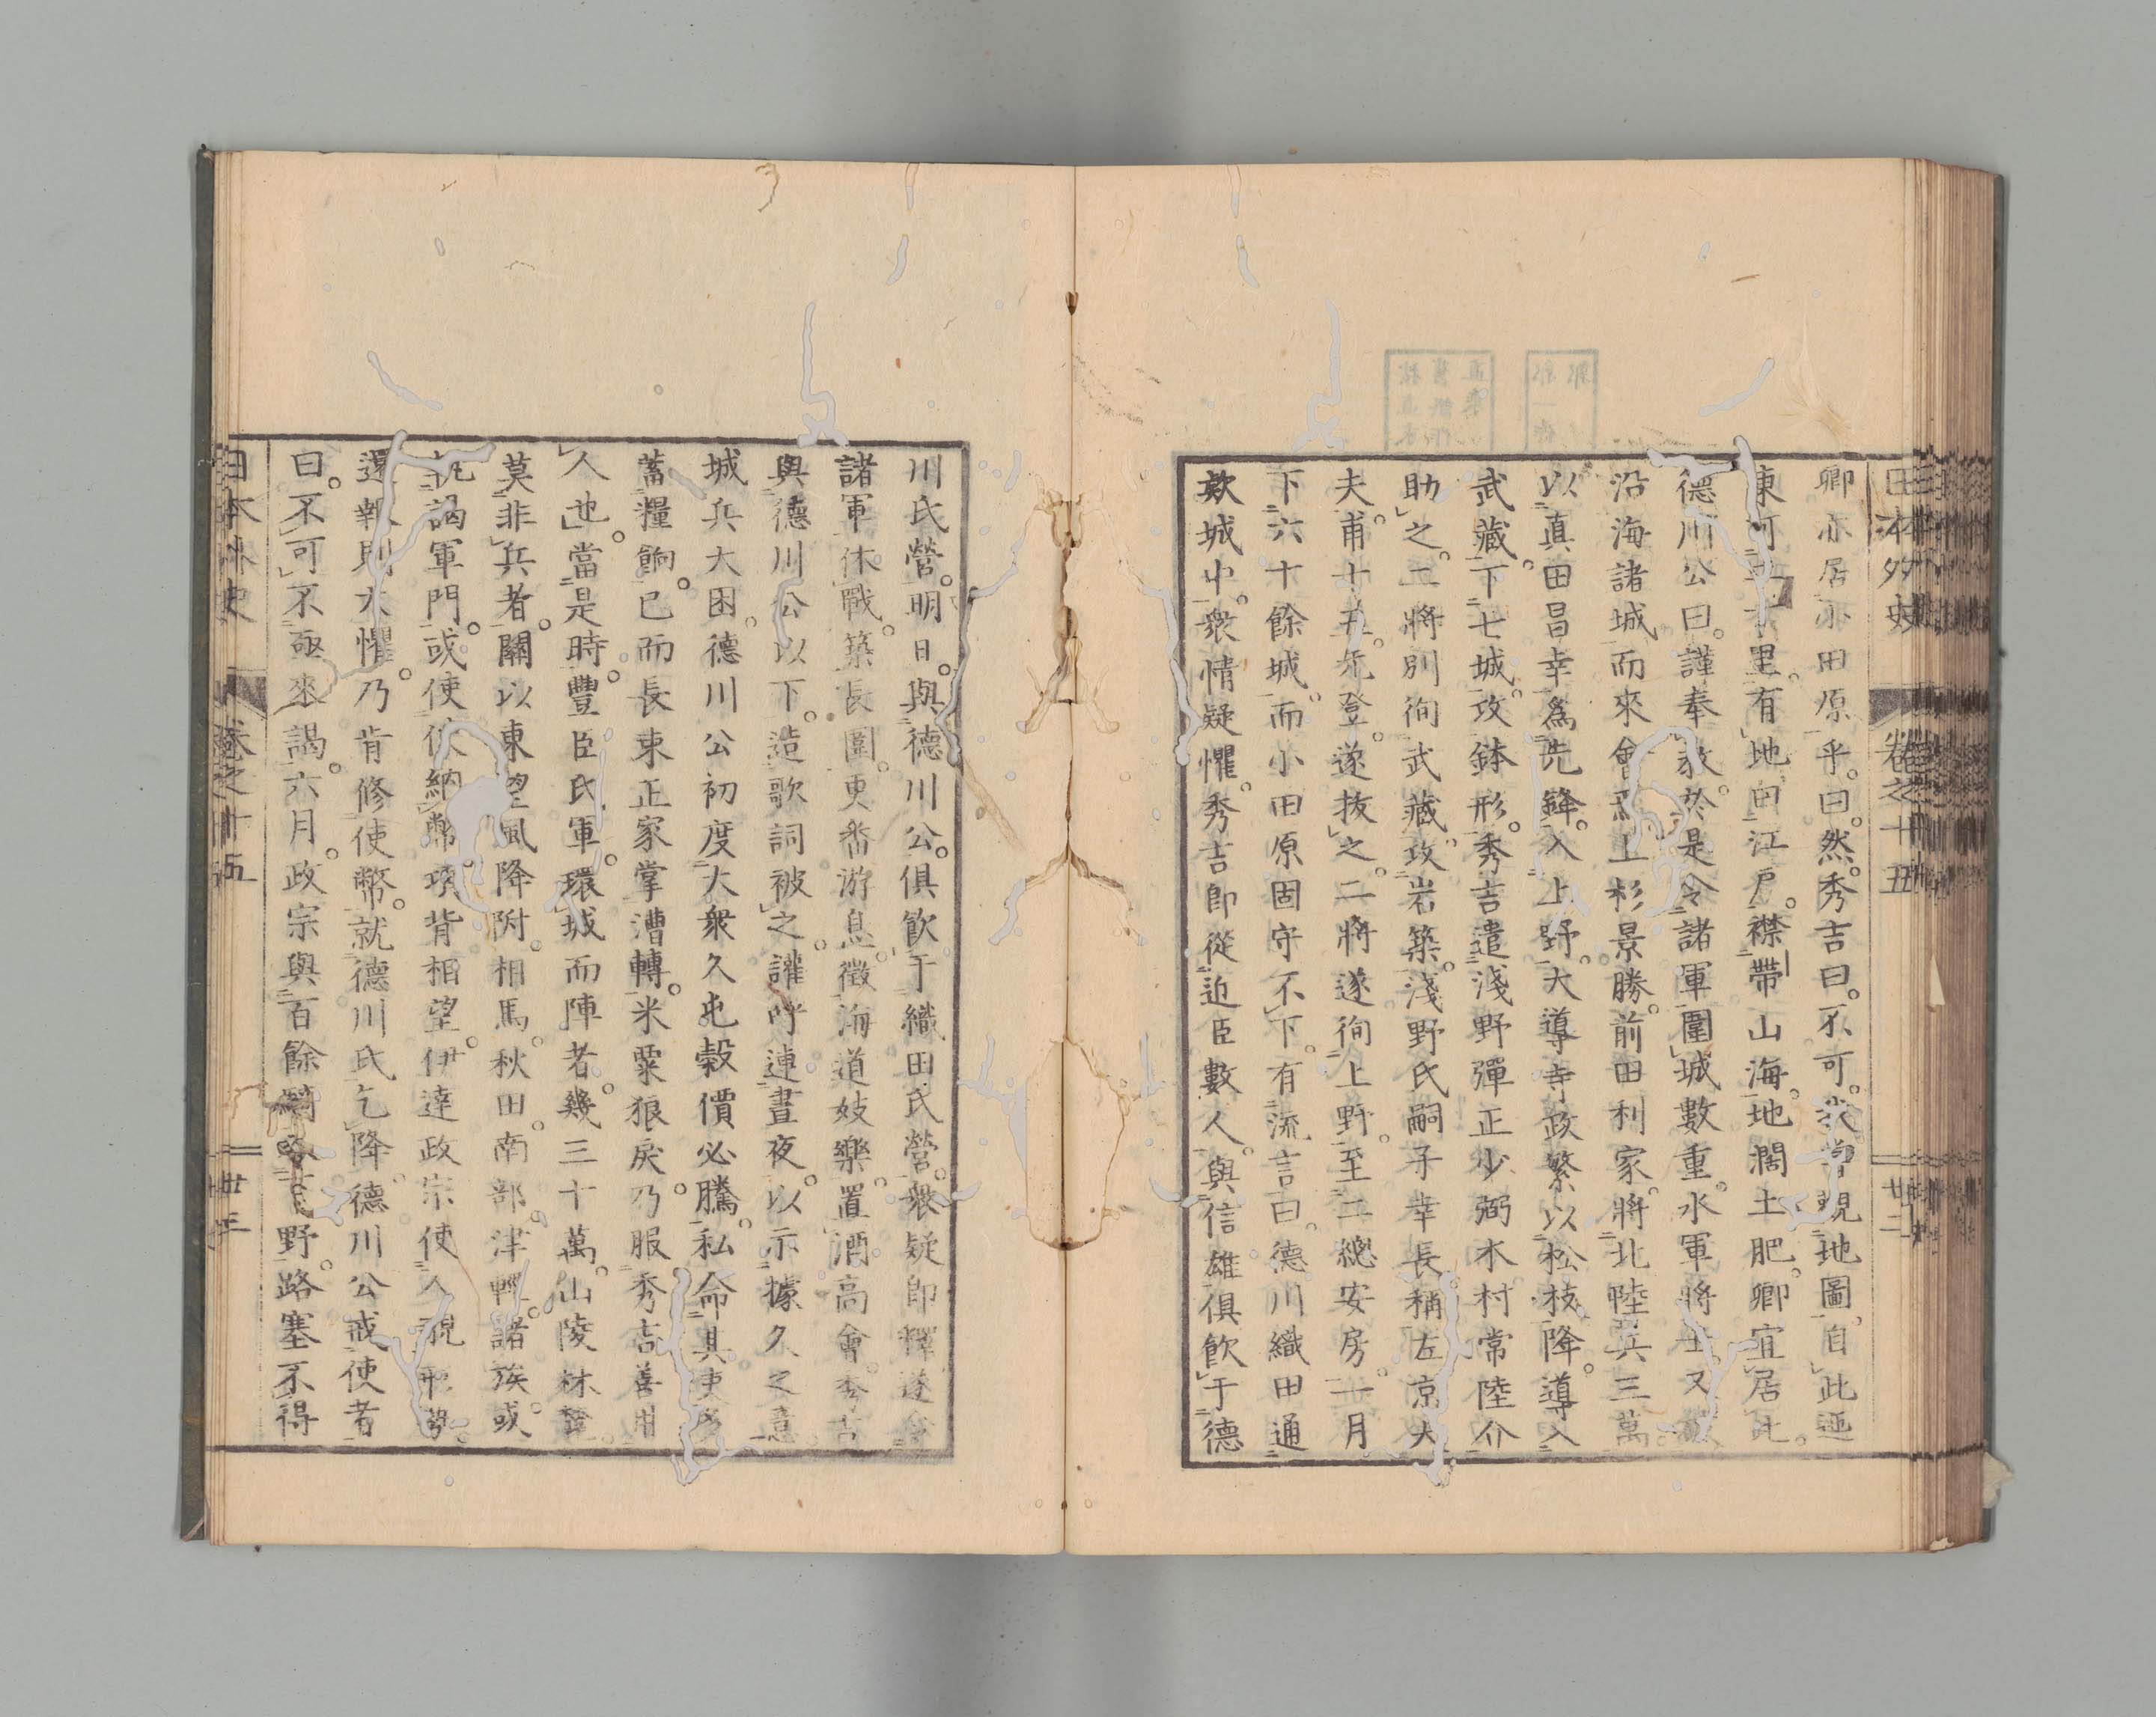 日本外史 卷之十五 廿二
卿亦居小田原乎。曰。然。秀吉曰。不可。我嘗覩地圖。自此迤
東可二十里。有地曰江戸。襟帶山海。地濶土肥。卿宜居此。
德川公曰。謹奉教。於是令諸軍圍城數重。水軍將士又徇
沿海諸城而來會。上杉景勝。前田利家。將北陸兵三萬。
以眞田昌幸爲先鋒。入上野。大導寺政繁以松枝降。導入
武藏。下七城。攻鉢形。秀吉遣淺野彈正少弼木村常陸介
助之。二將別徇武藏。攻岩築。淺野氏嗣子幸長稱左京大
夫。甫十五。先登。遂拔之。二將遂徇上野。至二總安房。一月
下六十餘城。而小田原固守不下。有流言曰。德川織田通
款城中。衆情疑懼。秀吉卽從近臣數人。與信雄俱飮于德
川氏營。明日。與德川公俱飮于織田氏營。衆疑卽釋。遂令
諸軍休戰。築長圍。更番游息。徵海道妓樂。置酒高會。秀吉
與德川公以下。造歌詞被之。讙呼連晝夜。以示據久之意。
城兵大困。德川公初度大衆久屯穀價必騰。私命其吏多
蓄糧餉。已而長束正家掌漕轉。米粟狼戾。乃服秀吉善用
人也。當是時。豐臣氏軍。環城而陣者。幾三十萬。山陵林壑。
莫非兵者。關以東望風降附。相馬。秋田。南部。津輕。諸族。或
詣謁軍門。或使使納幣。項背相望。伊達政宗使人覘形勢。
還報。則大懼。乃肯修使幣。就德川氏乞降。德川公戒使者
曰。不可不亟來謁。六月。政宗與百餘騎 野。路塞不得
日本外史 卷之十五 廿三